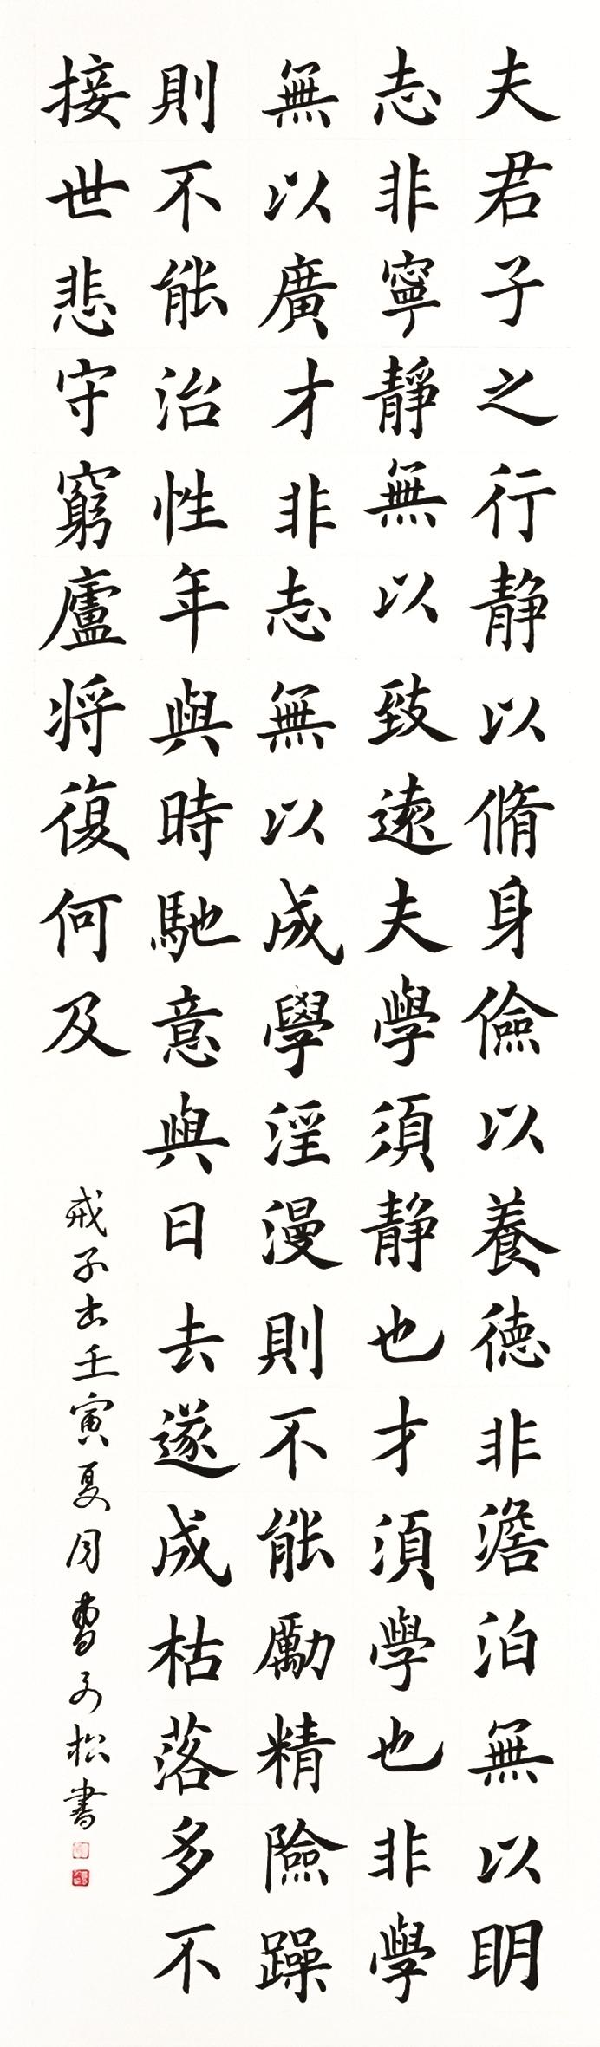 夫君子之行静以脩身儉以養德非澹泊無以眀
志非寧靜無以致遠夫學須静也才須學也非學
無以廣才非志無以成學淫漫則不能勵精險躁
則不能治性年與時馳意與日去遂成枯落多不
接世悲守窮廬将復何及
戒子书壬寅夏月曹松書